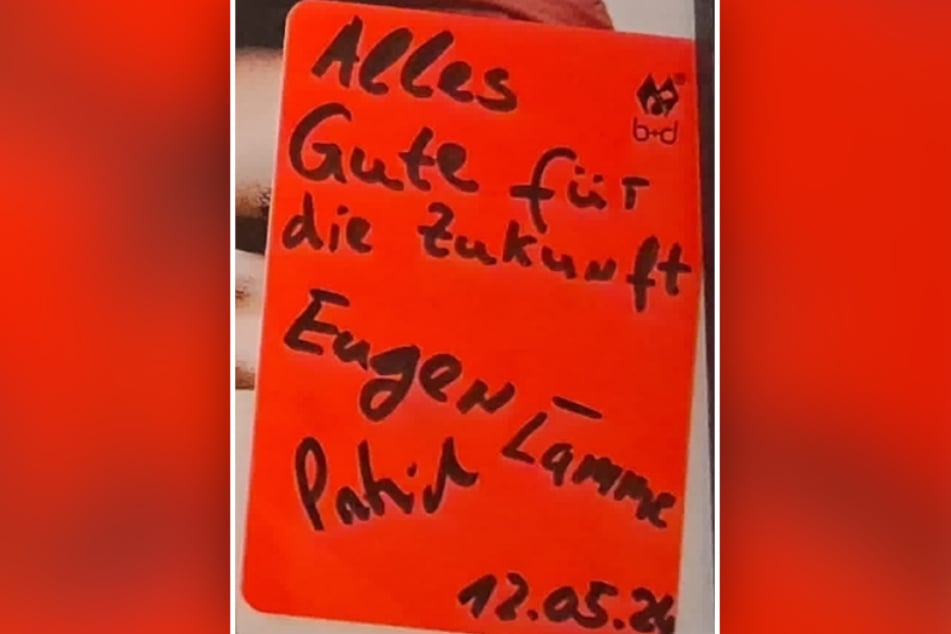 Alles
b+d
Gute für
die Zukunft
Eugen Lamme
Patrick
12.05.24